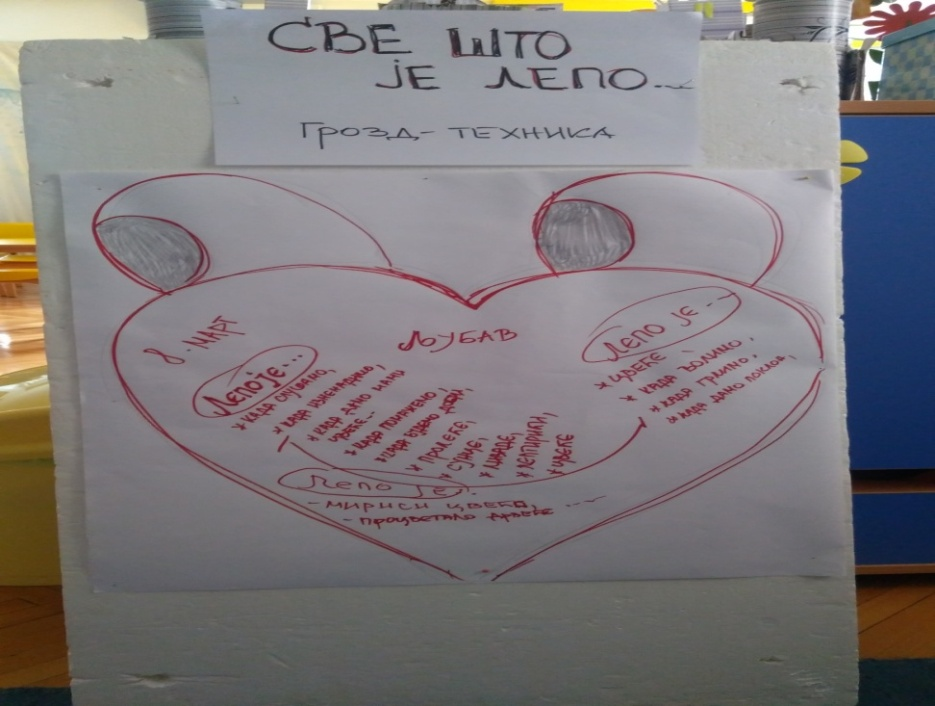 СВЕ ШТО
ЈЕ ЛЕПО...
ГРОЗД-ТЕХНИКА
8. МАРТ
ЉУБАВ
ЛЕПО ЈЕ...
* КАДА
* КАДА ИЗНЕНАДИМО,
* КАДА ДАМО МАМИ
ЦВЕЋЕ...
* КАДА ПОМАЖЕМО
* КАДА
* ПРОЛЕЋЕ,
* СУНЦЕ,
* ЛИВАДЕ,
* ЛЕПТИРИЋИ,
* ЦВЕЋЕ
ЛЕПО ЈE...
* ЦВЕЋЕ
* КАДА ВОЛИМО,
* КАДА ГРЛИМО,
* КАДА ДАМО ПОКЛОН,
ЛЕПО ЈЕ...
- МИРИСИ ЦВЕЋА, ...
- ПРОЦВЕТАЛО ДРВЕЋЕ